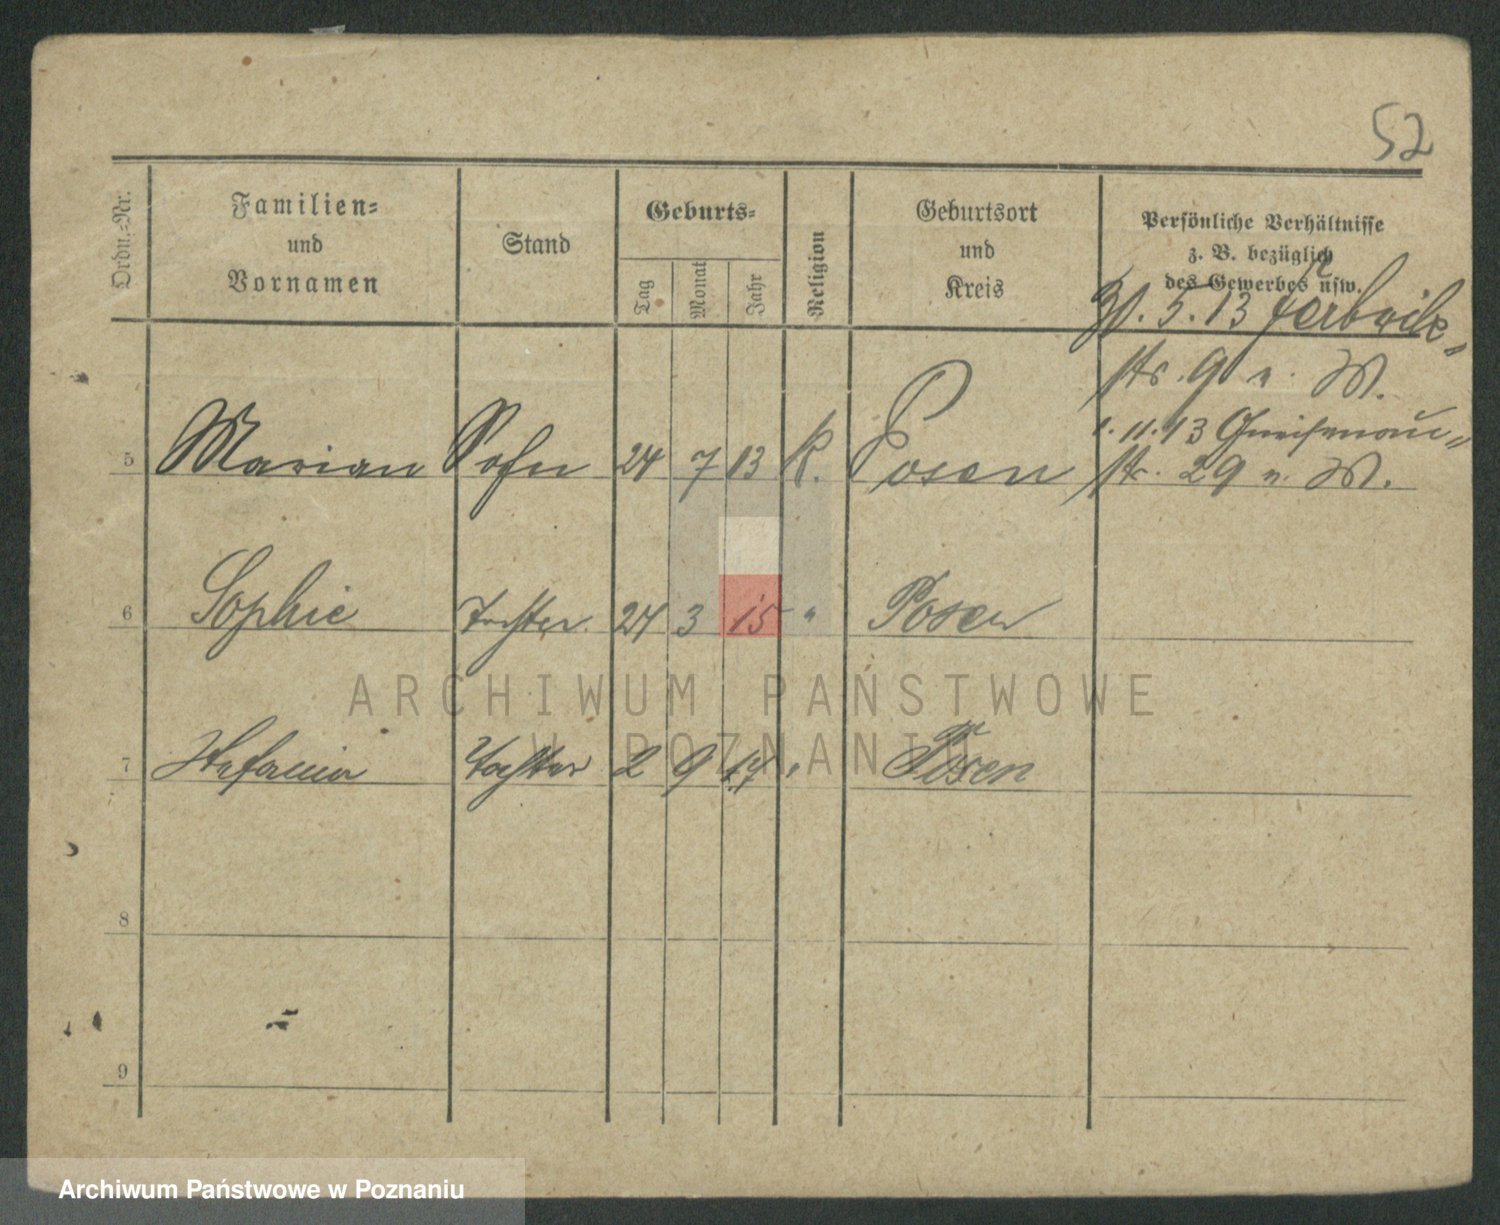 52
Ordn.-Nr.
Familien-
und
Vornamen
Stand
Geburts-
Tag
Monat
Jahr
Religion
Geburtsort
und
Kreis
Persönliche Verhältnisse
z. B. bezüglich
des Gewerbes usw.
5. 13
str. 9 v. W.
5 Marian Sohn 24 7 13 K. Posen
1. 11. 13 Gneisenau-
str. 29 v. W.
6 Sophie Tochter 24 3 15 " Posen
7 Stefania Tochter 2 9 17 " Posen
8
9
ARCHIWUM PAŃSTWOWE
W POZNANIU
Archiwum Państwowe w Poznaniu